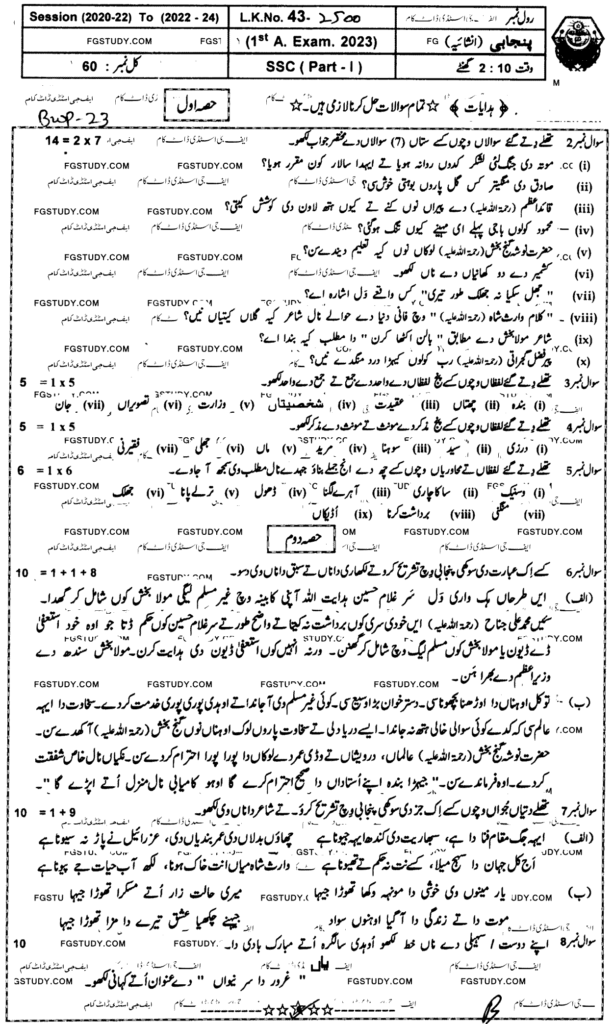 Session (2020-22) To (2022 - 24) L.K.No. 43- 2500 رول نمبر
FGSTUDY.COM (1st A. Exam. 2023) پنجابی (انشائیہ) FG
کل نمبر: 60 SSC ( Part - I ) وقت 2 : 10 گھنٹے
Bwp-23 حصہ اول ☆ تمام سوالات حل کرنا لازمی ہیں۔ ☆ ہدایات
سوال نمبر 2 تھلے دتے گئے سوالاں وچوں کے ستاں (7) سوالاں دے مختصر جواب لکھو۔ 14 = 2 x 7
(i) موتہ دی جنگ لئی لشکر کدوں روانہ ہویا تے ایہدا سالار کون مقرر ہویا؟
(ii) صادق دی منگیتر کس گل پاروں بوہتی خوش سی؟
(iii) قائداعظم (رحمۃ اللہ علیہ) دے پیراں نوں کنے تے کیوں ہتھ لاون دی کوشش کیتی؟
(iv) محمود کولوں باجی پہلے ای مہینے کیوں تنگ ہوگئی؟
(v) حضرت نوشہ گنج بخش (رحمۃ اللہ علیہ) لوکاں نوں کیہ تعلیم دیندے سن؟
(vi) کشمیر دے دو کھانیاں دے ناں لکھو۔
(vii) "جھل سکیا نہ جھلک طور تیری" کس واقعے ول اشارہ اے؟
(viii) "کلام وارث شاہ (رحمۃ اللہ علیہ)" وچ فانی دنیا دے حوالے نال شاعر کیہ گلاں کیتیاں نیں؟
(ix) شاعر مولا بخش دے مطابق "بالن اکٹھا کرن" دا مطلب کیہ بندا اے؟
(x) پیر فضل گجراتی (رحمۃ اللہ علیہ) رب کولوں کیہڑا درد منگدے نیں؟
سوال نمبر 3 تھلے دتے گئے لفظاں وچوں کے پنج لفظاں دے واحد دے جمع تے جمع دے واحد لکھو۔ 5 = 1 x 5
(i) بندہ (ii) چھتاں (iii) عقیدت (iv) شخصیتاں (v) وزارت (vi) تصویراں (vii) جان
سوال نمبر 4 تھلے دتے گئے لفظاں وچوں کے پنج مذکر دے مونث تے مونث دے مذکر لکھو۔ 5 = 1 x 5
(i) درزی (ii) سید (iii) سوہنا (iv) مرید (v) ماں (vi) جھلی (vii) فقیرنی
سوال نمبر 5 تھلے دتے گئے لفظاں تے محاوریاں وچوں کے چھ دے انج جملے بناؤ جیہدے نال مطلب وی سمجھ آ جاوے۔ 6 = 1 x 6
(i) دستک (ii) ساکاچاری (iii) آہرے لگنا (iv) ڈھول (v) ترلے پانا (vi) جھلک
(vii) منگنی (viii) برداشت کرنا (ix) اڈیکاں
حصہ دوم
سوال نمبر 6 کسے اک عبارت دی سوکھی پنجابی وچ تشریح کرو تے لکھاری دا ناں تے سبق دا ناں وی دسو۔ 10 = 1 + 1 + 8
(الف) ایں طرحاں ہک واری ول سر غلام حسین ہدایت اللہ آپنی کابینہ وچ غیر مسلم لیگی مولا بخش کوں شامل کر گھدا۔
سئیں محمد علی جناح (رحمۃ اللہ علیہ) ایں خودی سری کوں برداشت نہ کیتا تے واضح طور تے سر غلام حسین کوں حکم ڈتا جو اوہ خود استعفیٰ
ڈے ڈیون یا مولا بخش کوں مسلم لیگ وچ شامل کر گھنن۔ ورنہ انہیں کوں استعفیٰ ڈیون دی ہدایت کرن۔ مولا بخش سندھ دے
وزیر اعظم دے بھرا ہن۔
(ب) توکل اوہناں دا اوڑھنا بچھونا سی۔ دستر خوان بڑا وسیع سی۔ کوئی غیر مسلم وی آ جاندا تے اوہدی پوری پوری خدمت کردے۔ سخاوت دا ایہہ
عالم سی کہ کدے کوئی سوالی خالی ہتھ نہ جاندا۔ ایسے دریا دلی تے سخاوت پاروں لوک اوہناں نوں گنج بخش (رحمۃ اللہ علیہ) آکھدے سن۔
حضرت نوشہ گنج بخش (رحمۃ اللہ علیہ) عالماں، درویشاں تے وڈی عمر دے لوکاں دا پورا پورا احترام کردے سن۔ نکیاں نال خاص شفقت
کردے۔ اوہ فرماندے سن۔ "جیہڑا بندہ اپنے استاداں دا صحیح احترام کرے گا اوہو کامیابی نال منزل اتے اپڑے گا"۔
سوال نمبر 7 تھلے دتیاں جزواں وچوں کسے اک جز دی سوکھی پنجابی وچ تشریح کرو۔ تے شاعر دا ناں وی لکھو۔ 10 = 1 + 9
(الف) ایہہ جگ مقام فنا دا ہے، سبھا ریت دی کندھ ایہہ جیونا ہے چھاؤں بدلاں دی عمر بندیاں دی، عزرائیل نے پاڑ نہ سیونا ہے
اج کل جہان دا سہج میلا، کسے نت نہ حکم تے تھیونا ہے وارث شاہ میاں انت خاک ہونا، لکھ آب حیات جے پیونا ہے
(ب) یار مینوں وی خوشی دا مونہہ وکھا تھوڑا جیہا میری حالت زار اتے مسکرا تھوڑا جیہا
موت دا تے زندگی دا آ گیا اوہنوں سواد جیہنے چکھیا عشق تیرے دا مزا تھوڑا جیہا
سوال نمبر 8 اپنے دوست / سہیلی دے ناں خط لکھو اوہدی سالگرہ اتے مبارک بادی دا۔ 10
یاں
"غرور دا سر نیواں" دے عنوان اتے کہانی لکھو۔